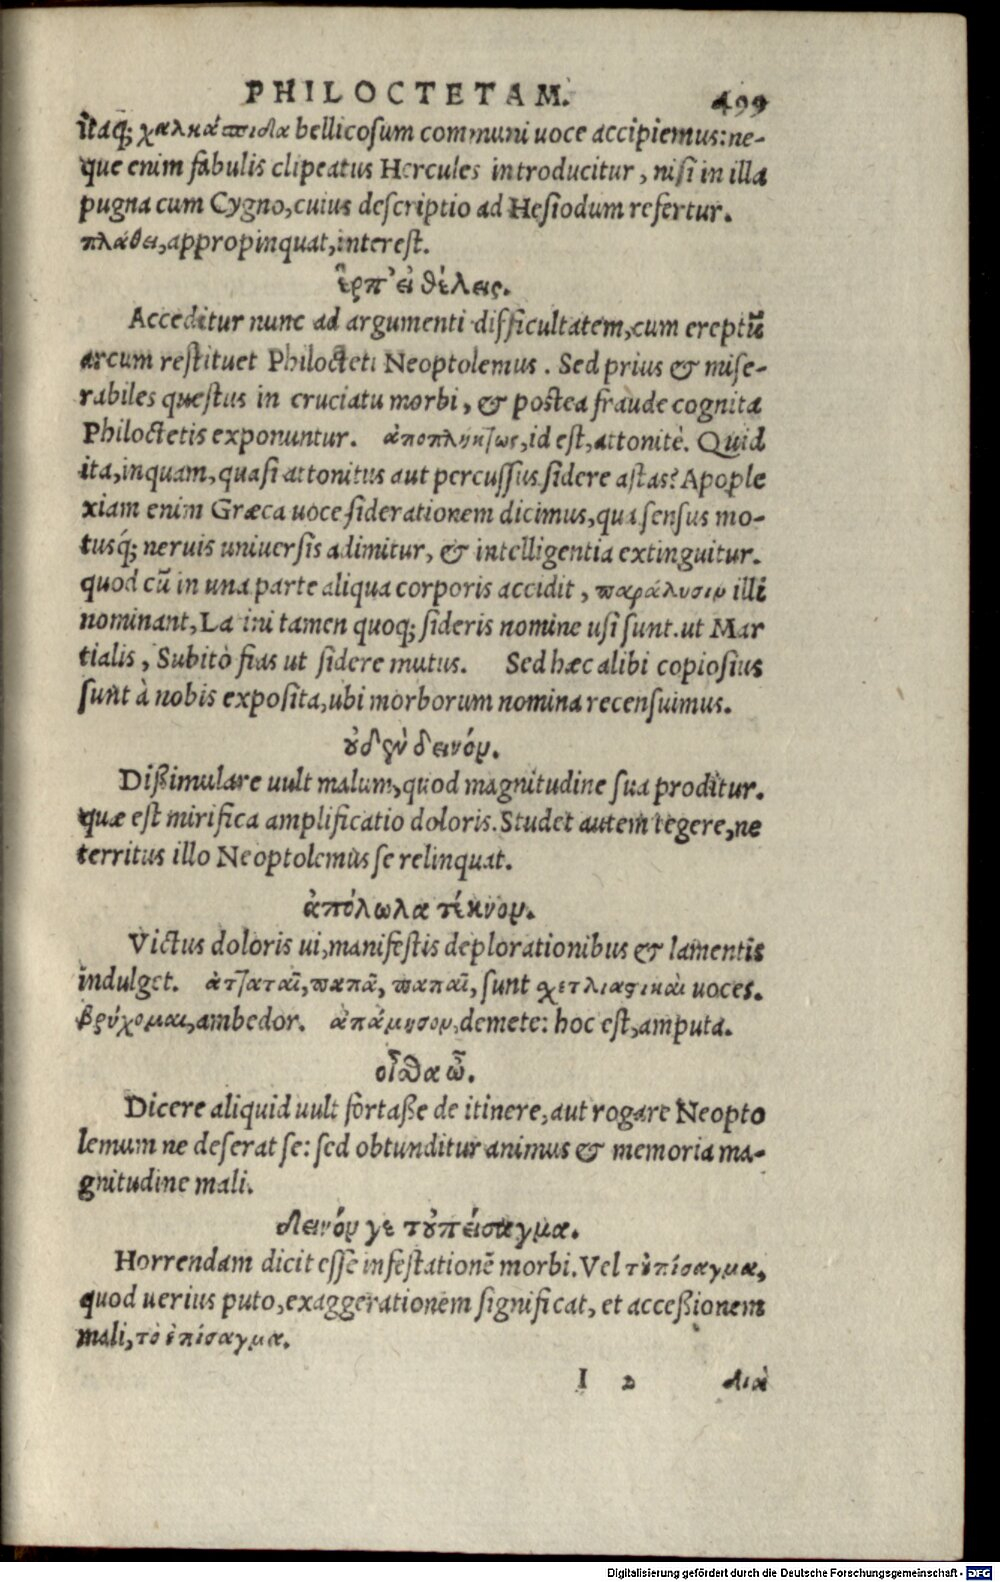 PHILOCTETAM. 499
itaq; χαλκάσπιδα bellicosum communi uoce accipiemus: ne-
que enim fabulis clipeatus Hercules introducitur, nisi in illa
pugna cum Cygno, cuius descriptio ad Hesiodum refertur.
πλάθει, appropinquat, interest.
ἕρπ’ εἰ θέλεις.
Acceditur nunc ad argumenti difficultatem, cum ereptũ
arcum restituet Philocteti Neoptolemus. Sed prius & mise-
rabiles questus in cruciatu morbi, & postea fraude cognita
Philoctetis exponuntur. ἀποπλήκτως, id est, attonitè. Quid
ita, inquam, quasi attonitus aut percussus sidere astas? Apople
xiam enim Græca uoce siderationem dicimus, qua sensus mo-
tusq́; neruis uniuersis adimitur, & intelligentia extinguitur.
quod cũ in una parte aliqua corporis accidit, παράλυσιν illi
nominant, La ini tamen quoq; sideris nomine usi sunt. ut Mar
tialis, Subitò fias ut sidere mutus. Sed hæc alibi copiosius
sunt à nobis exposita, ubi morborum nomina recensuimus.
οὐδὲν δεινόν.
Dißimulare uult malum, quod magnitudine sua proditur.
quæ est mirifica amplificatio doloris. Studet autem tegere, ne
territus illo Neoptolemus se relinquat.
ἀπόλωλα τέκνον.
Victus doloris ui, manifestis deplorationibus & lamentis
indulget. ἀτταταῖ, παπᾶ, παπαῖ, sunt σχετλιαστικαὶ uoces.
βρύχομαι, ambedor. ἀπάμησον, demete: hoc est, amputa.
οἶσθα ὦ.
Dicere aliquid uult fortaße de itinere, aut rogare Neopto
lemum ne deserat se: sed obtunditur animus & memoria ma-
gnitudine mali.
δεινόν γε τοὐπείσαγμα.
Horrendam dicit esse infestationẽ morbi. Vel τοὐπίσαγμα,
quod uerius puto, exaggerationem significat, et acceßionem
mali, τὸ ἐπίσαγμα.
I 2 διὰ
Digitalisierung gefördert durch die Deutsche Forschungsgemeinschaft - DFG